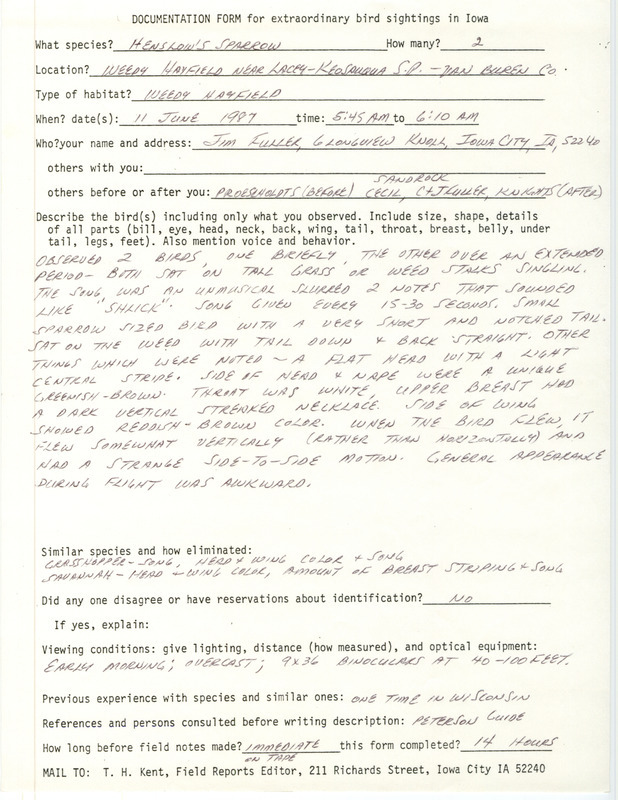 DOCUMENTATION FORM for extraordinary bird sightings in Iowa
What species? HENSLOW'S SPARROW How many? 2
Location? WEEDY HAYFIELD NEAR LACEY-KEOSAUQUA S.P. - VAN BUREN CO.
Type of habitat? WEEDY HAYFIELD
When? date(s): 11 JUNE 1987 time: 5:45 AM to 6:10 AM
Who? your name and address: JIM FULLER, 6 LONGVIEW KNOLL, IOWA CITY, IA, 52240
others with you:
SANDROCK
others before or after you: PROESHOLDTS (BEFORE) CECIL, C+J FULLER, KNIGHTS (AFTER)
Describe the bird(s) including only what you observed. Include size, shape, details
of all parts (bill, eye, head, neck, back, wing, tail, throat, breast, belly, under
tail, legs, feet). Also mention voice and behavior.
OBSERVED 2 BIRDS, ONE BRIEFLY, THE OTHER OVER AN EXTENDED
PERIOD - BOTH SAT ON TALL GRASS OR WEED STALKS SINGING.
THE SONG WAS AN UNMUSICAL SLURRED 2 NOTES THAT SOUNDED
LIKE "SHLICK". SONG GIVEN EVERY 15-30 SECONDS. SMALL
SPARROW SIZED BIRD WITH A VERY SHORT AND NOTCHED TAIL.
SAT ON THE WEED WITH TAIL DOWN & BACK STRAIGHT. OTHER
THINGS WHICH WERE NOTED - A FLAT HEAD WITH A LIGHT
CENTRAL STRIPE. SIDE OF HEAD & NAPE WERE A UNIQUE
GREENISH-BROWN. THROAT WAS WHITE, UPPER BREAST HAD
A DARK VERTICAL STREAKED NECKLACE. SIDE OF WING
SHOWED REDDISH-BROWN COLOR. WHEN THE BIRD FLEW, IT
FLEW SOMEWHAT VERTICALLY (RATHER THAN HORIZONTALLY) AND
HAD A STRANGE SIDE-TO-SIDE MOTION. GENERAL APPEARANCE
DURING FLIGHT WAS AWKWARD.
Similar species and how eliminated:
GRASSHOPPER - SONG, HEAD & WING COLOR & SONG
SAVANNAH - HEAD & WING COLOR, AMOUNT OF BREAST STRIPING & SONG
Did any one disagree or have reservations about identification? NO
If yes, explain:
Viewing conditions: give lighting, distance (how measured), and optical equipment:
EARLY MORNING; OVERCAST; 9X36 BINOCULARS AT 40-100 FEET.
Previous experience with species and similar ones: ONE TIME IN WISCONSIN
References and persons consulted before writing description: PETERSON GUIDE
How long before field notes made? IMMEDIATE this form completed? 14 HOURS
ON TAPE
MAIL TO: T. H. Kent, Field Reports Editor, 211 Richards Street, Iowa City IA 52240